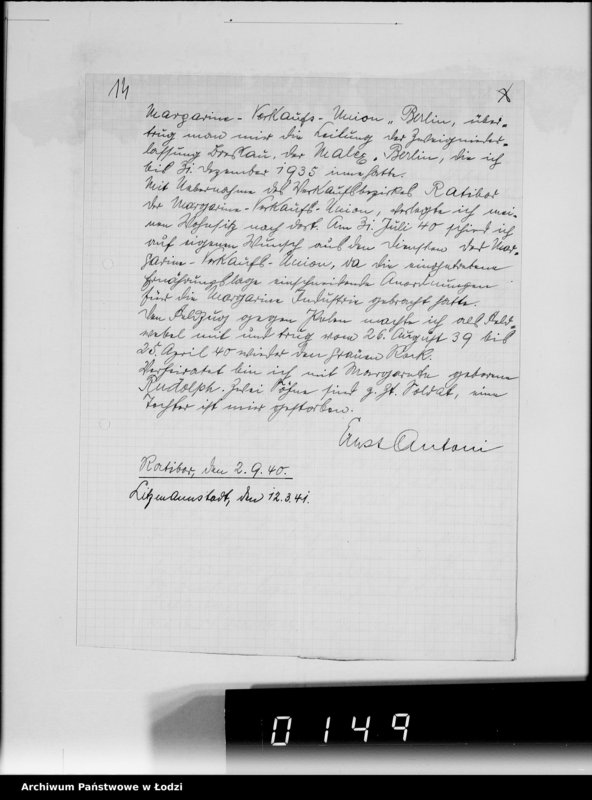 14
Margarine-Verkaufs-Union, Berlin, über-
trug man mir die Leitung der Zweignieder-
lassung Breslau, der Malex, Berlin, die ich
bis 31. Dezember 1935 inne hatte.
Mit Uebernahme des Verkaufsbezirkes Ratibor
der Margarine-Verkaufs-Union, verlegte ich mei-
nen Wohnsitz nach dort. Am 31. Juli 40 schied ich
auf eigenen Wunsch aus den Diensten der Mar-
garine-Verkaufs-Union, da die eingetretene
Ernährungslage einschneidende Anordnungen
für die Margarine Industrie gebracht hatte.
Den Feldzug gegen Polen machte ich als Feld-
webel mit und trug vom 26. August 39 bis
25. April 40 wieder den grauen Rock.
Verheiratet bin ich mit Margarete geborene
Rudolph. Zwei Söhne sind z. Zt. Soldat, eine
Tochter ist mir gestorben.
Ernst Antoni
Ratibor, den 2.9.40.
Litzmannstadt, den 12.3.41.
0149
Archiwum Państwowe w Łodzi